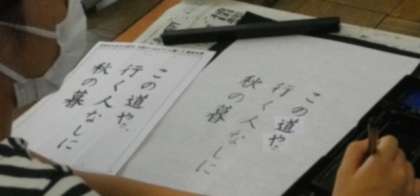 この道や
行く人なしに
秋の暮
この道や
行く人なしに
秋の暮